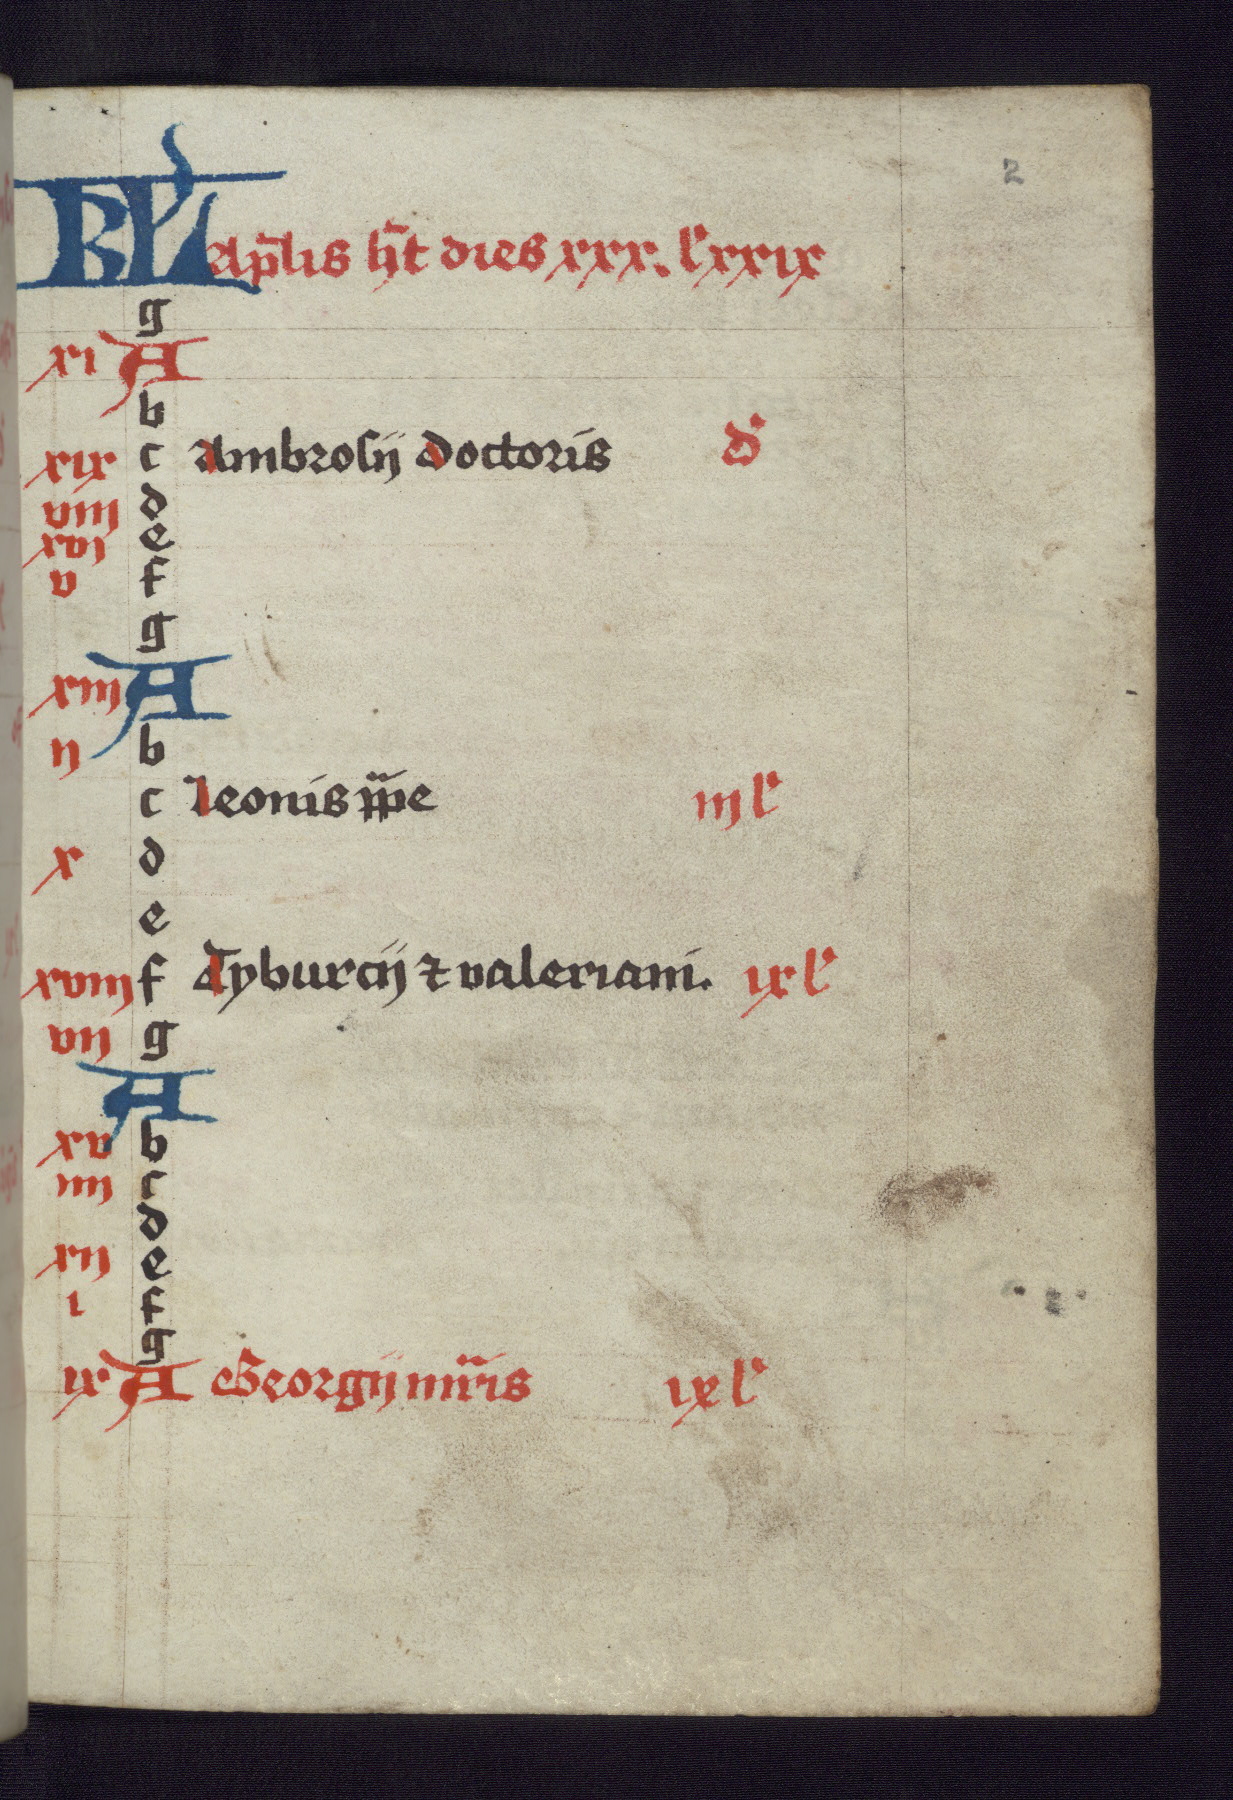 2
KL Ap̄lis hn̄t dies xxx. lxxix
g
xi A
b
xix c Ambrosij Doctoris d
viij d
xvj e
v f
g
xiij A
b
ij b
c Leonis ppe iij l
x d
e
xviij f Tyburcij ⁊ valeriani. ix l
vij g
A
xv b
iiij c
d
xij e
i f
g
ix A Georgij mr̄is ix l